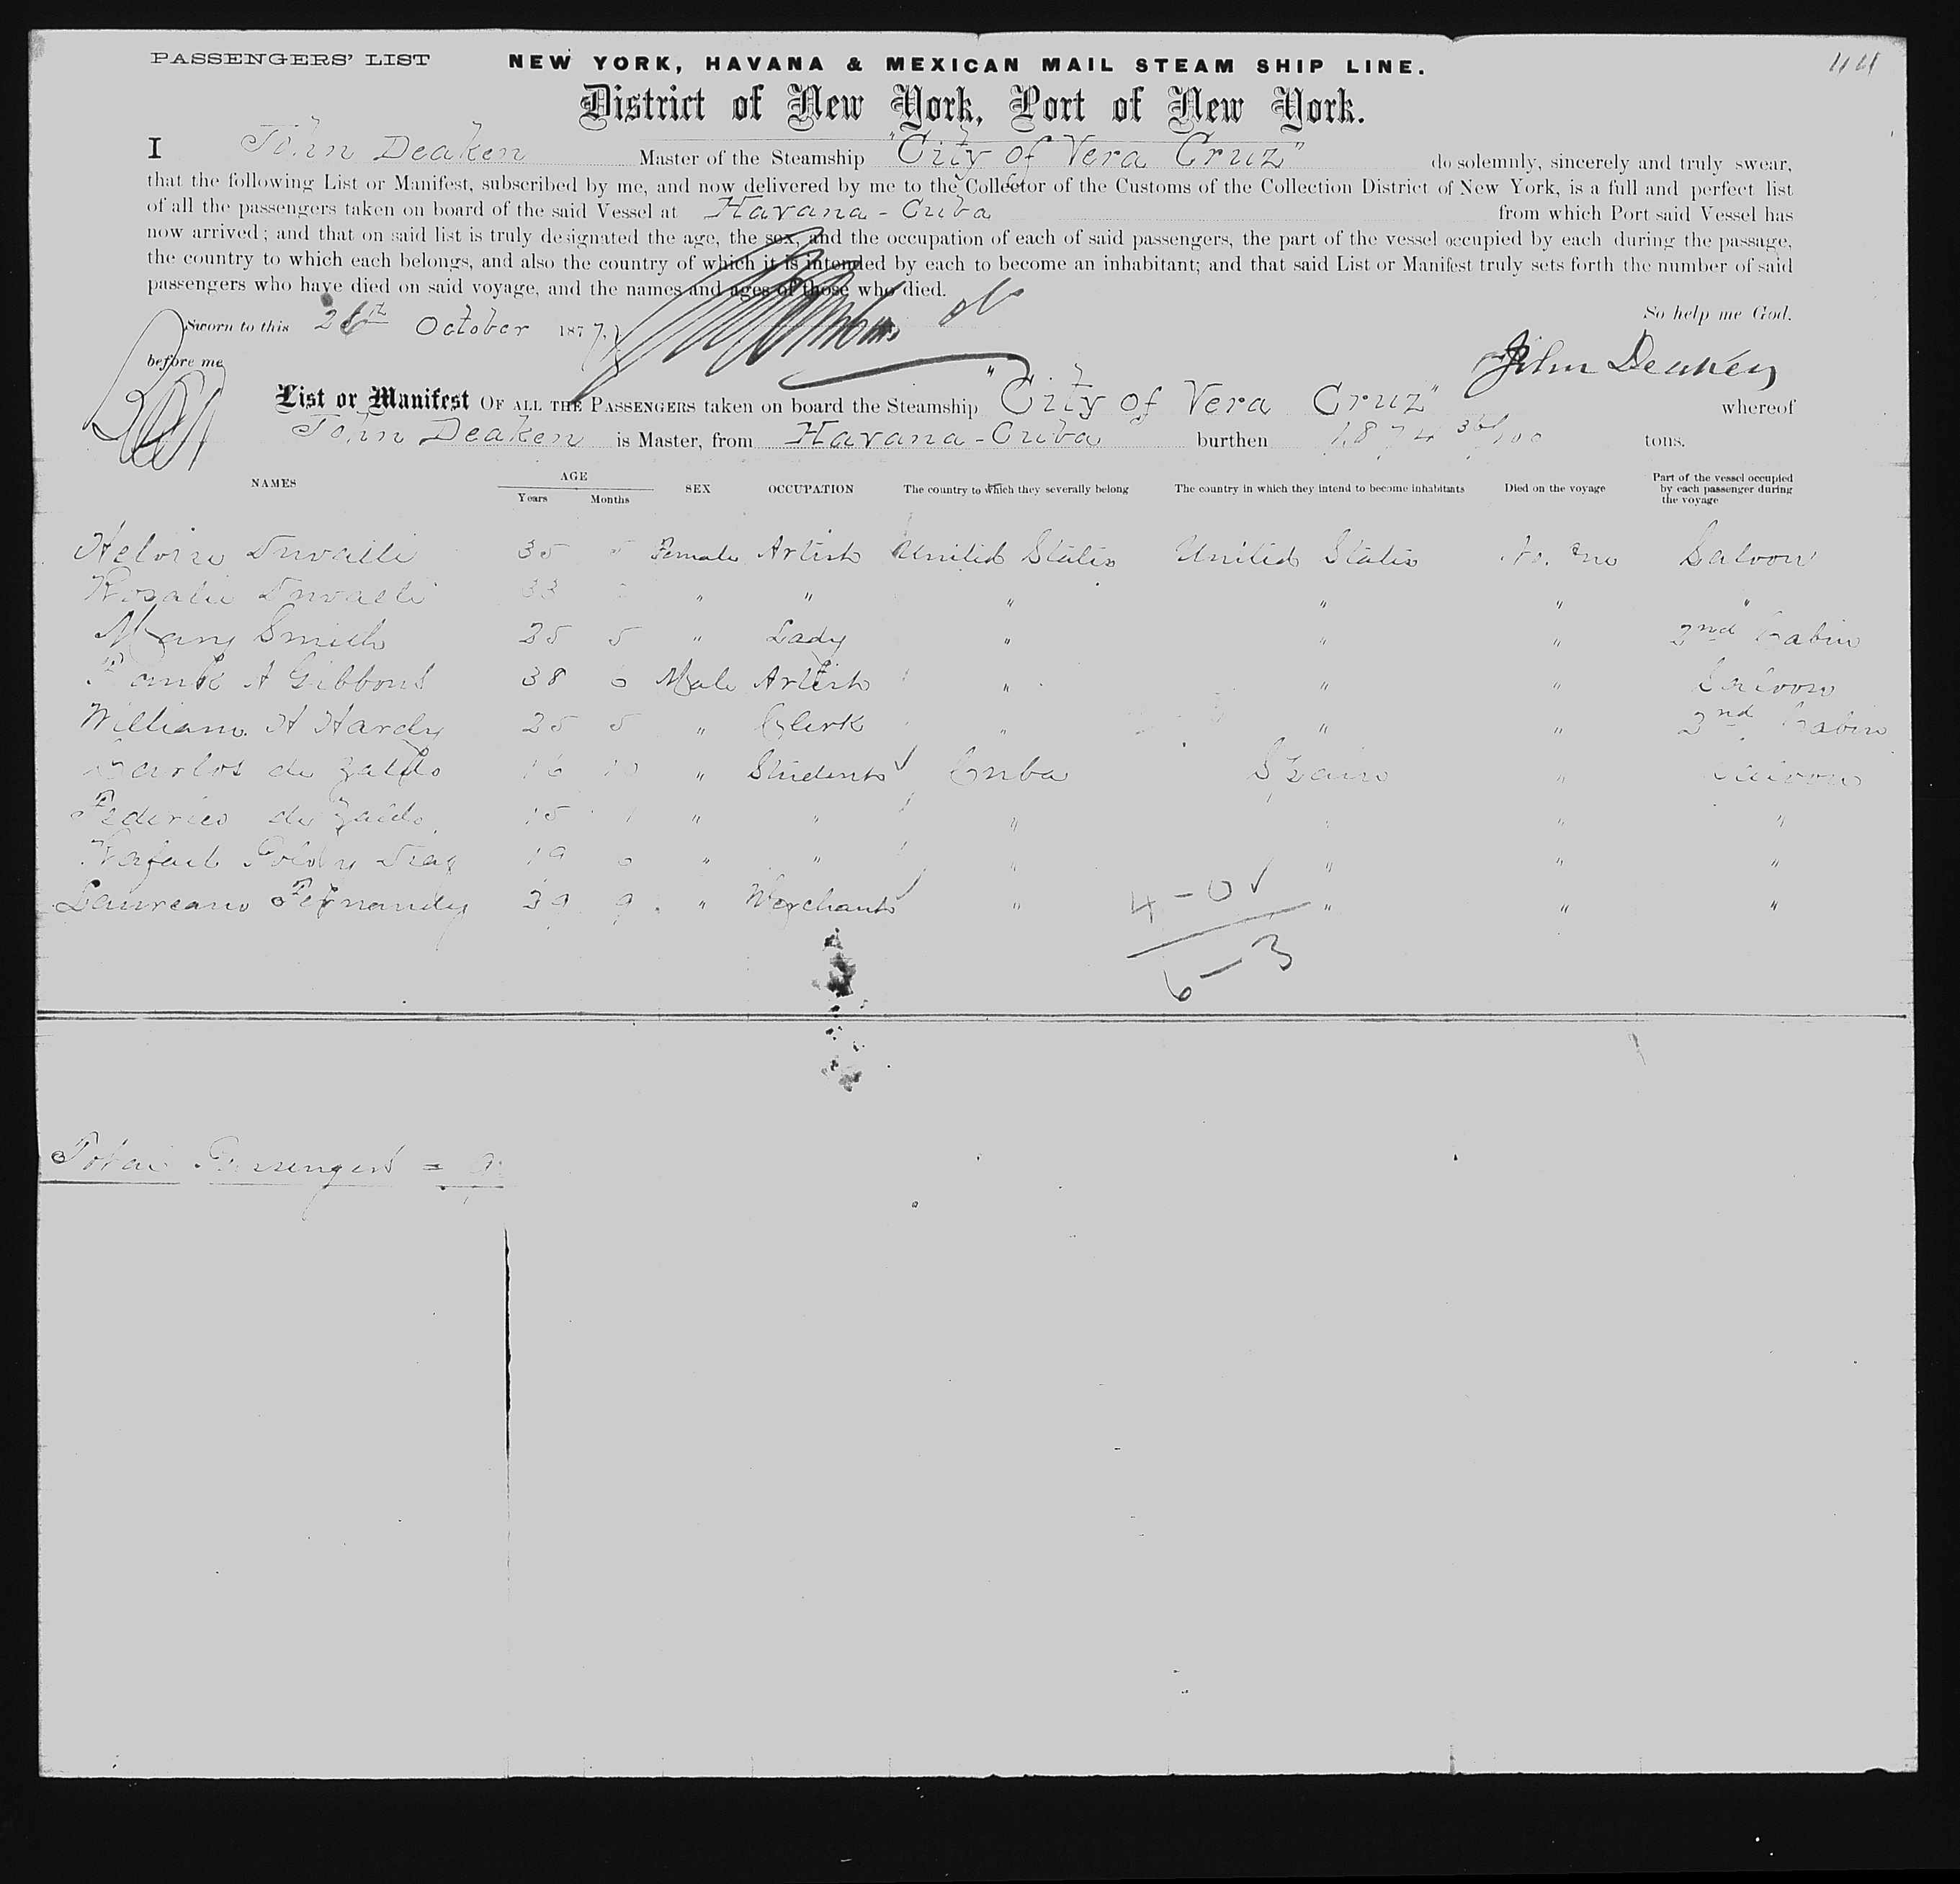 PASSENGERS' LIST NEW YORK, HAVANA & MEXICAN MAIL STEAM SHIP LINE. 44
District of New York, Port of New York.
I John Deaken Master of the Steamship "City of Vera Cruz" do solemnly, sincerely and truly swear,
that the following List or Manifest, subscribed by me, and now delivered by me to the Collector of the Customs of the Collection District of New York, is a full and perfect list
of all the passengers taken on board of the said Vessel at Havana - Cuba from which Port said Vessel has
now arrived; and that on said list is truly designated the age, the sex, and the occupation of each of said passengers, the part of the vessel occupied by each during the passage,
the country to which each belongs, and also the country of which it is intended by each to become an inhabitant; and that said List or Manifest truly sets forth the number of said
passengers who have died on said voyage, and the names and ages of those who died.
So help me God.
Sworn to this October 1877.
before me
John Deaken
List or Manifest OF ALL THE PASSENGERS taken on board the Steamship "City of Vera Cruz" whereof
John Deaken is Master, from Havana - Cuba burthen 1,874 tons.
NAMES AGE Years Months SEX OCCUPATION The country to which they severally belong The country in which they intend to become inhabitants Died on the voyage Part of the vessel occupied by each passenger during the voyage
35 5 Female Artist United States United States Saloon
Rosalie 33 " " " " " "
Mary Smith 25 5 " Lady " " " 2nd Cabin
Frank A Gibbons 38 6 Male Artist " " " Saloon
William H Hardy 25 5 " Clerk " " " 2nd Cabin
Carlos de Zaldo 16 10 " Student Cuba Spain " Saloon
Federico de Zaldo 15 1 " " " " " "
Rafael 19 6 " " " " " "
Laureano Fernandez 39 9 " Merchant " " " "
4 - 0 ✓
6 - 3
Total Passengers = 9